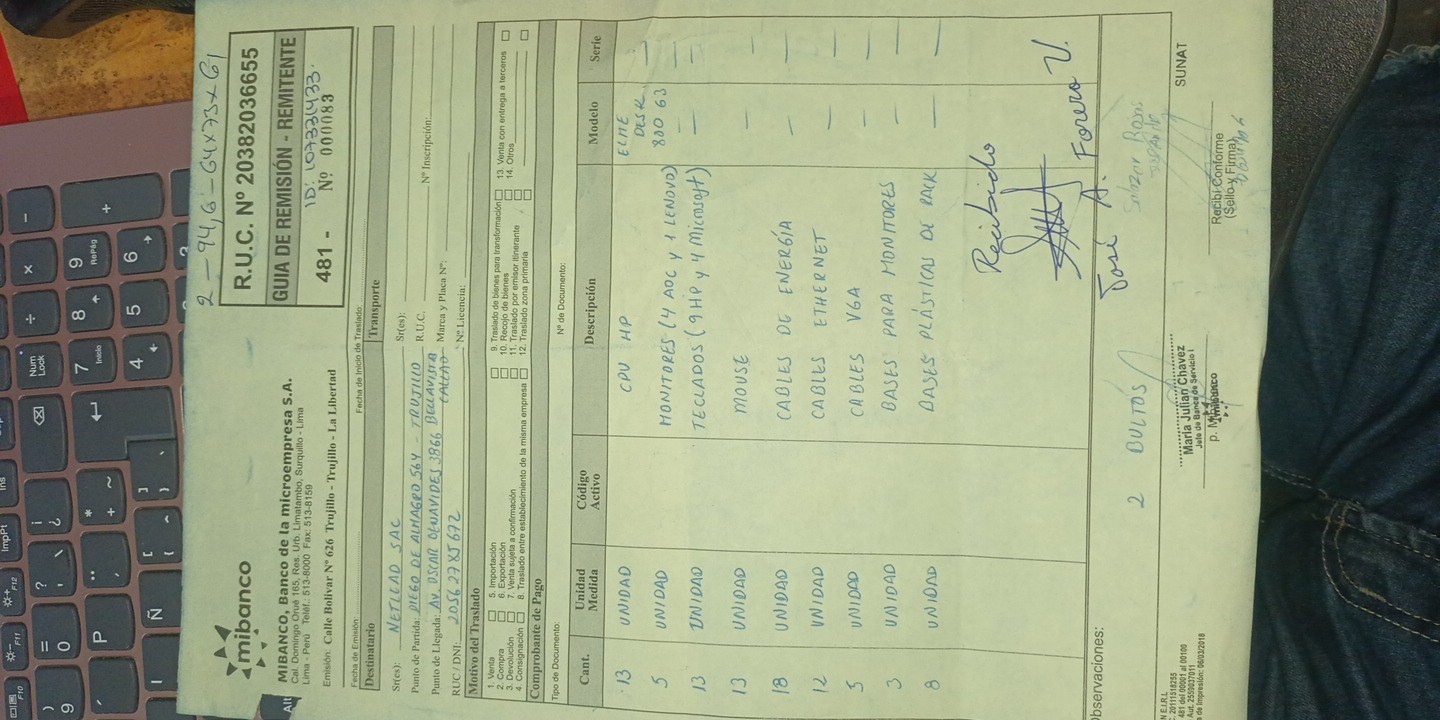 2 - 94,6 - 64x73x61
mibanco
MIBANCO, Banco de la microempresa S.A.
Cal. Domingo Orué 165, Res. Urb. Limatambo, Surquillo - Lima
Lima - Perú Teléf.: 513-8000 Fax: 513-8159
Emisión: Calle Bolívar Nº 626 Trujillo - Trujillo - La Libertad
R.U.C. Nº 20382036655
GUIA DE REMISIÓN - REMITENTE
ID: 107331433.
481 - Nº 000083
Fecha de Emisión: Fecha de Inicio de Traslado:
Destinatario Transporte
Sr(es): NETLCAD SAC Sr(es):
Punto de Partida: DIEGO DE ALMAGRO 564 - TRUJILLO R.U.C. Nº Inscripción:
Punto de Llegada: AV. OSCAR BENAVIDES 3866 BELLAVISTA Marca y Placa Nº:
CALLAO
RUC / DNI: Nº. Licencia:
Motivo del Traslado
1. Venta 5. Importación 9. Traslado de bienes para transformación 13. Venta con entrega a terceros
2. Compra 6. Exportación 10. Recojo de bienes 14. Otros
3. Devolución 7. Venta sujeta a confirmación 11. Traslado por emisor itinerante
4. Consignación 8. Traslado entre establecimiento de la misma empresa 12. Traslado zona primaria
Comprobante de Pago
Tipo de Documento: Nº de Documento:
Cant. Unidad Medida Código Activo Descripción Modelo Serie
13 UNIDAD CPU HP ELITE DESK 800 G3 —
5 UNIDAD MONITORES (4 AOC Y 1 LENOVO) — —
13 UNIDAD TECLADOS (9 HP Y 4 Microsoft) — —
13 UNIDAD MOUSE — —
18 UNIDAD CABLES DE ENERGÍA — —
12 UNIDAD CABLES ETHERNET — —
5 UNIDAD CABLES VGA — —
3 UNIDAD BASES PARA MONITORES — —
8 UNIDAD BASES PLÁSTICAS DE RACK — —
Recibido
José A. Forero V.
Observaciones:
2 BULTOS
María Julian Chavez
Jefe de Banca de Servicio I
p. Mibanco
Recibí Conforme
(Sello y Firma)
SUNAT